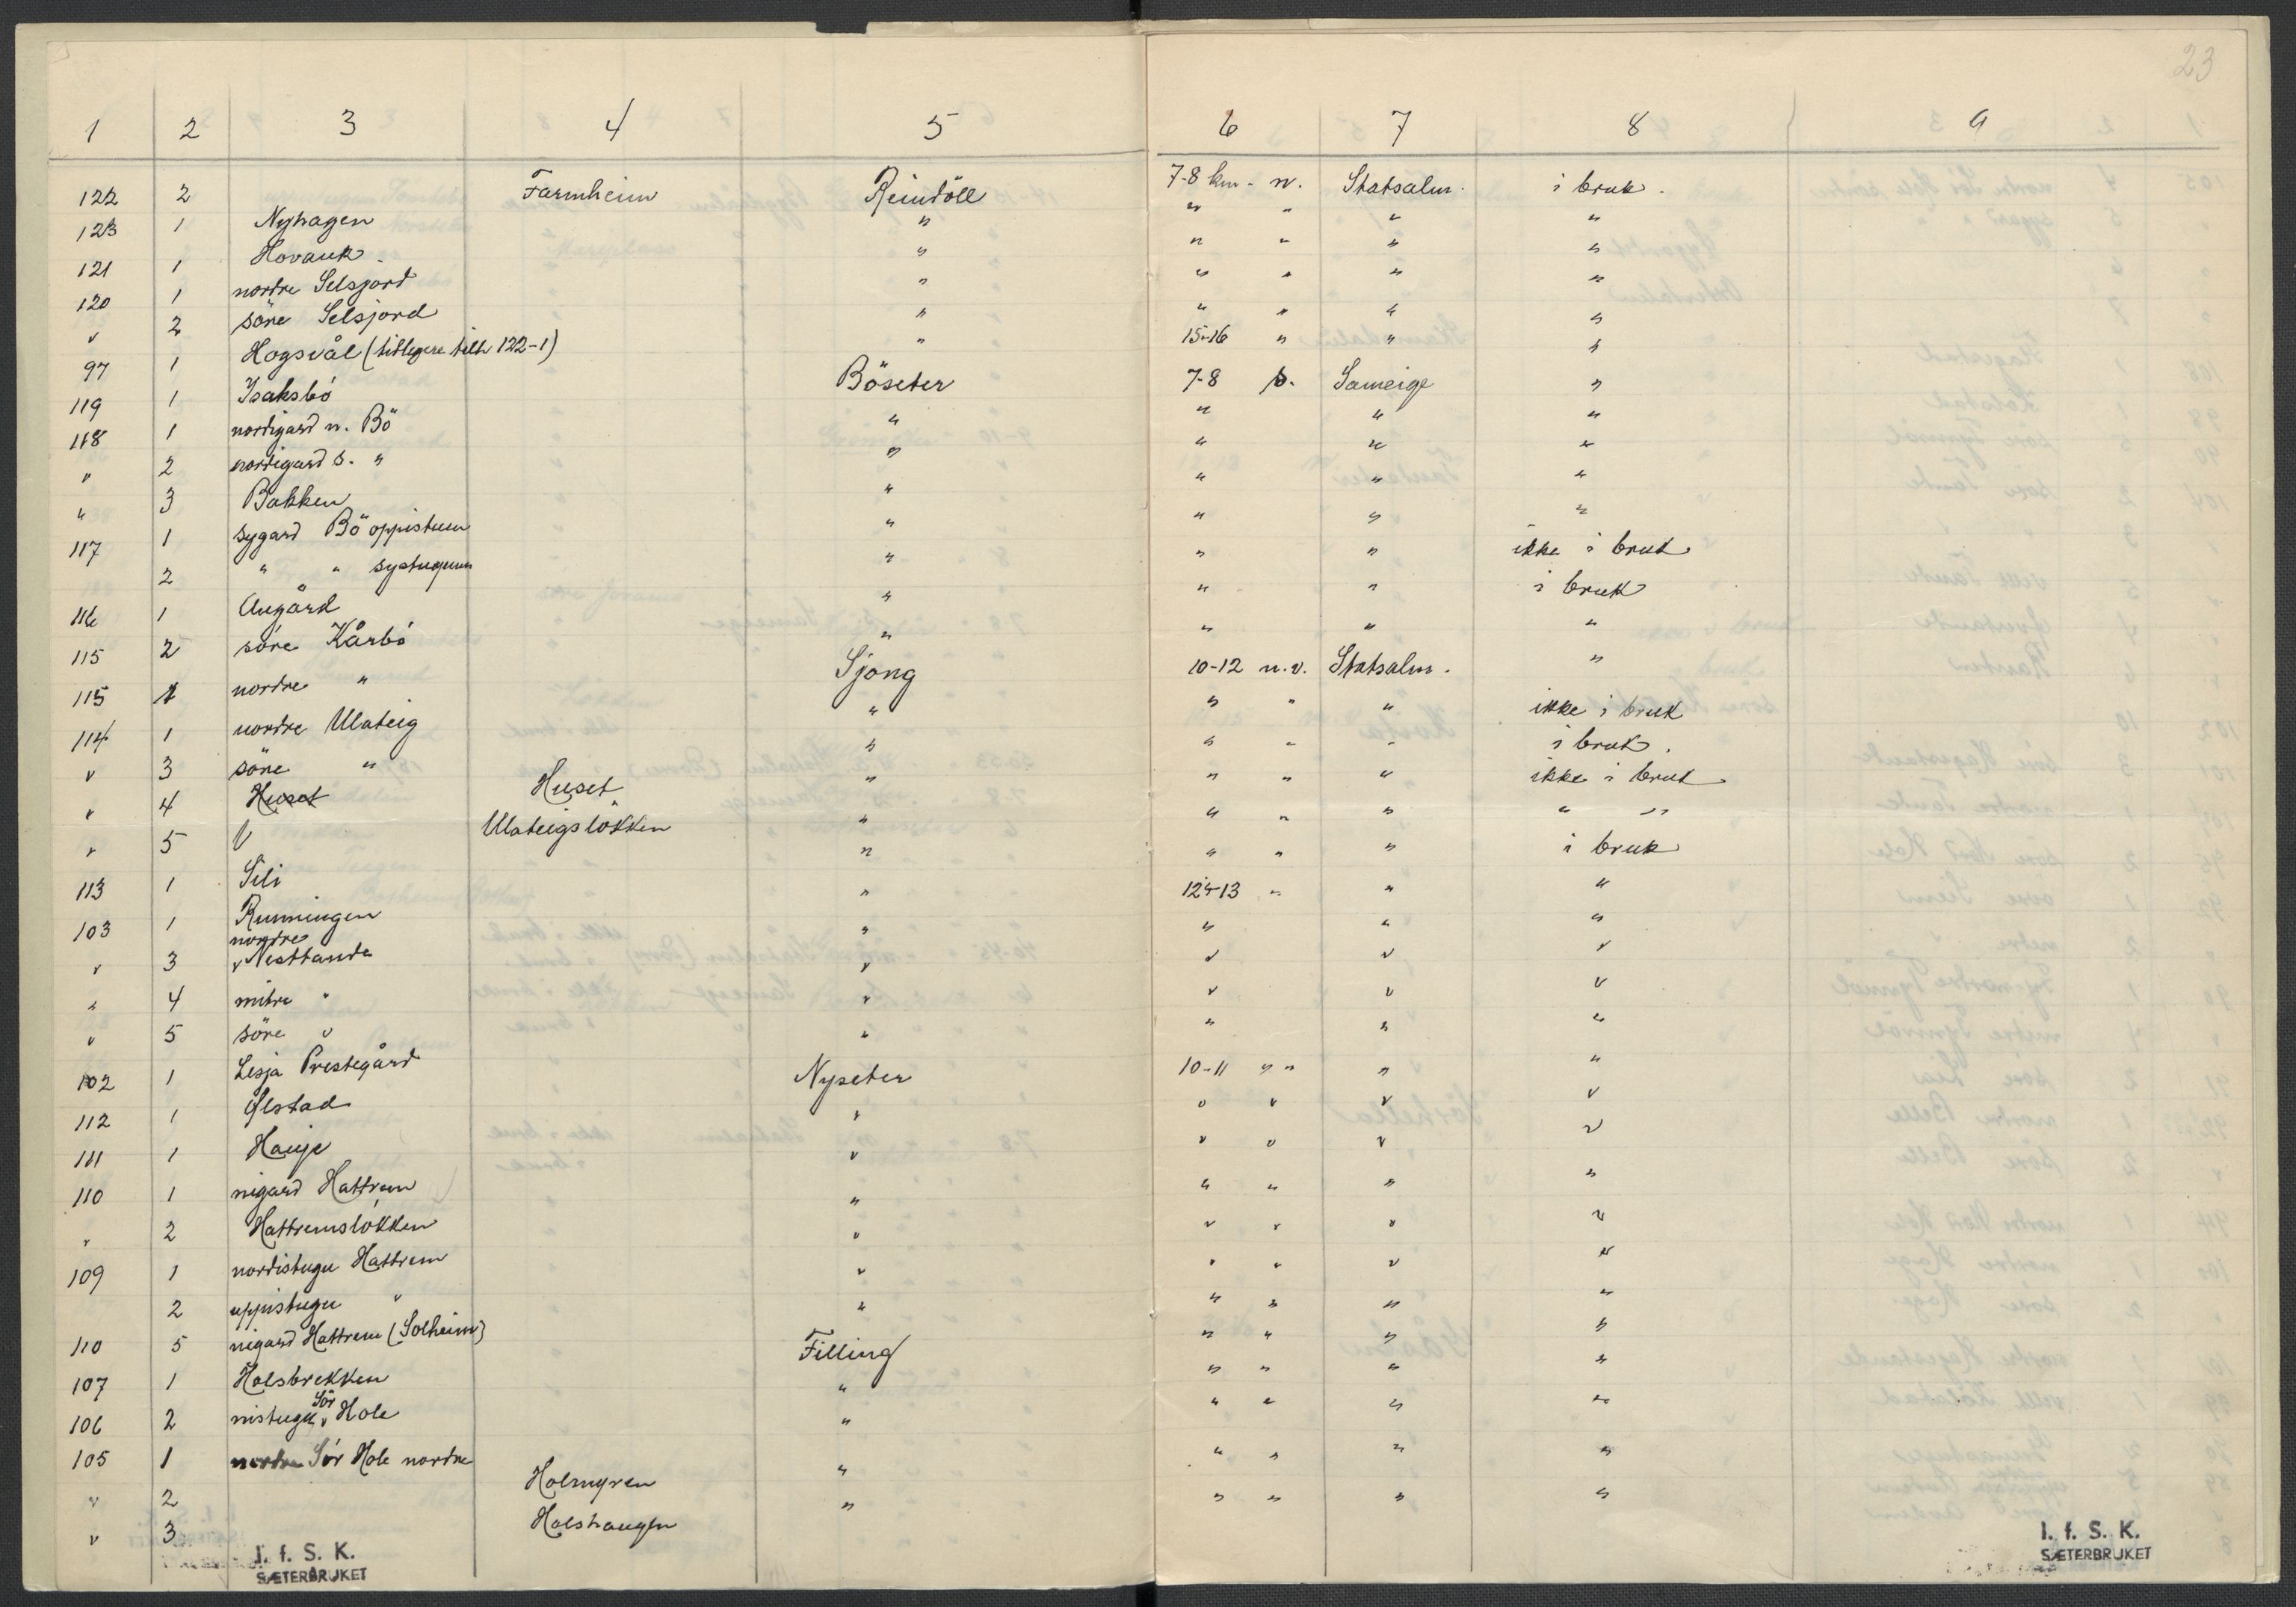 23
1 2 3 4 5 6 7 8 9
122 2 Farmheim Reindöll 7-8 km - n. Statsalm. i bruk.
123 1 Nyhagen " " " " "
121 1 Hovauk " " " " "
120 1 nordre Selsjord " " " " "
" 2 söre Selsjord " " " " "
97 1 Hogsvål (tidlegere tilh 122-1) " 15-16 " " "
119 1 Isaksbö Böseter 7-8 s. Sameige "
118 1 nordigard n. Bö " " " "
" 2 nordigard s. " " " " "
" 3 Bakken " " " "
117 1 sygard Bö oppistuen " " " "
2 " " systugunn " " " ikke i bruk
116 1 Augård " " " i bruk
115 2 söre Kårbö " " " "
115 1 nordre " Sjong 10-12 n.v. Statsalm. "
114 1 nordre Ulateig " " " " ikke i bruk
" 3 söre " " " " " i bruk.
" 4 Huset Huset " " " " ikke i bruk
" 5 Ulateigslökken " " " " " "
113 1 Sili " " " " i bruk
103 1 Runningen " 12-13 " " "
" 3 nordre Nesttande " " " "
" 4 mitre " " " " "
" 5 söre " " " " "
102 1 Lesja Prestegård Nyseter 10-11 " " " "
112 1 Ølstad " " " " "
111 1 Hauje " " " " "
110 1 nigard Hattrem " " " " "
" 2 Hattremslökken " " " " "
109 1 nordistugu Hattrem " " " " "
2 uppistugu " " " " " "
110 5 nigard Hattrem (Solheim) Filling " " " "
107 1 Holsbrekken " " " " "
106 2 nistugu Sör Hole " " " " "
105 1 nordre Sör Hole nordre " " " " "
" 2 Holmyren " " " " "
" 3 Holshaugen
I. f. S. K.
SÆTERBRUKET
I. f. S. K.
SÆTERBRUKET